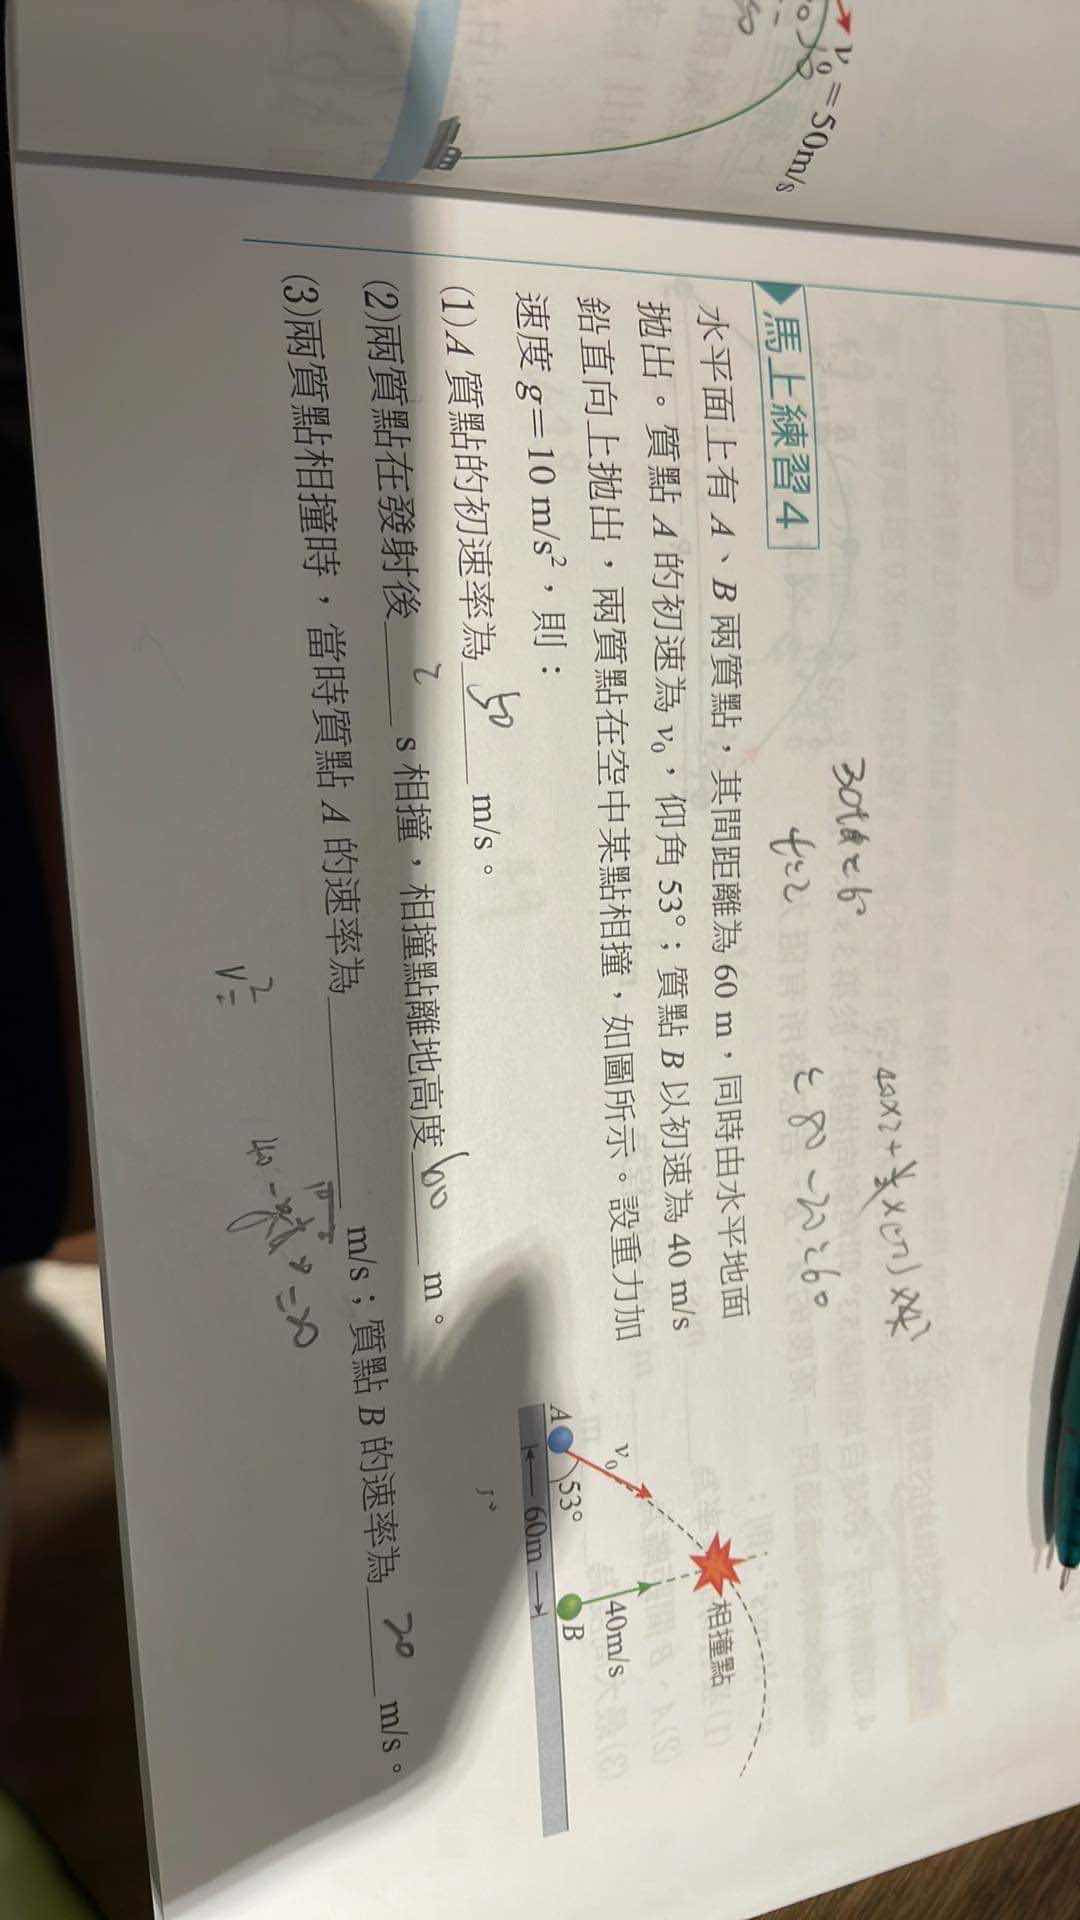 v₀=50m/s
馬上練習4
30t=6
t=2
=80-20=60
水平面上有 A、B 兩質點，其間距離為 60 m，同時由水平地面
拋出。質點 A 的初速為 v₀，仰角 53°；質點 B 以初速為 40 m/s
鉛直向上拋出，兩質點在空中某點相撞，如圖所示。設重力加
速度 g=10 m/s²，則：
(1)A 質點的初速率為 50 m/s。
(2)兩質點在發射後 2 s 相撞，相撞點離地高度 60 m。
(3)兩質點相撞時，當時質點 A 的速率為 m/s；質點 B 的速率為 20 m/s。
v²=
相撞點
v₀
40m/s
53°
A
B
60m